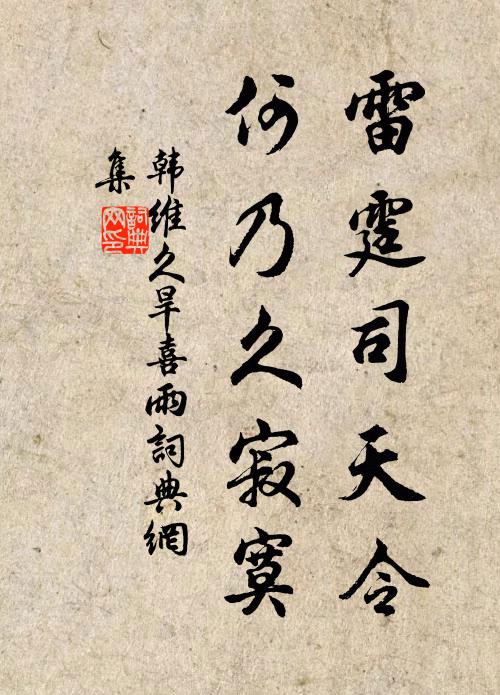 雷霆司天令
何乃久寂寞
韩维久旱喜雨詞典網
集
詞典
网印